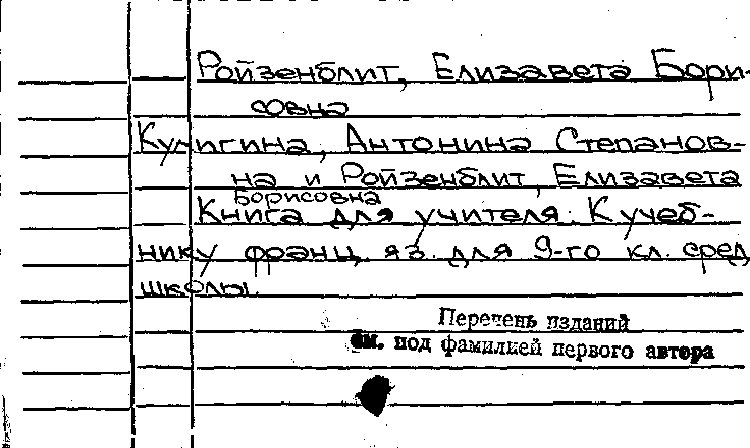 Ройзенблит, Елизавета Бори-
совна
Кулигина, Антонина Степанов-
на и Ройзенблит, Елизавета
Борисовна
Книга для учителя: К учеб-
нику франц. яз. для 9-го кл. сред.
школы.
Перечень изданий
см. под фамилией первого автора